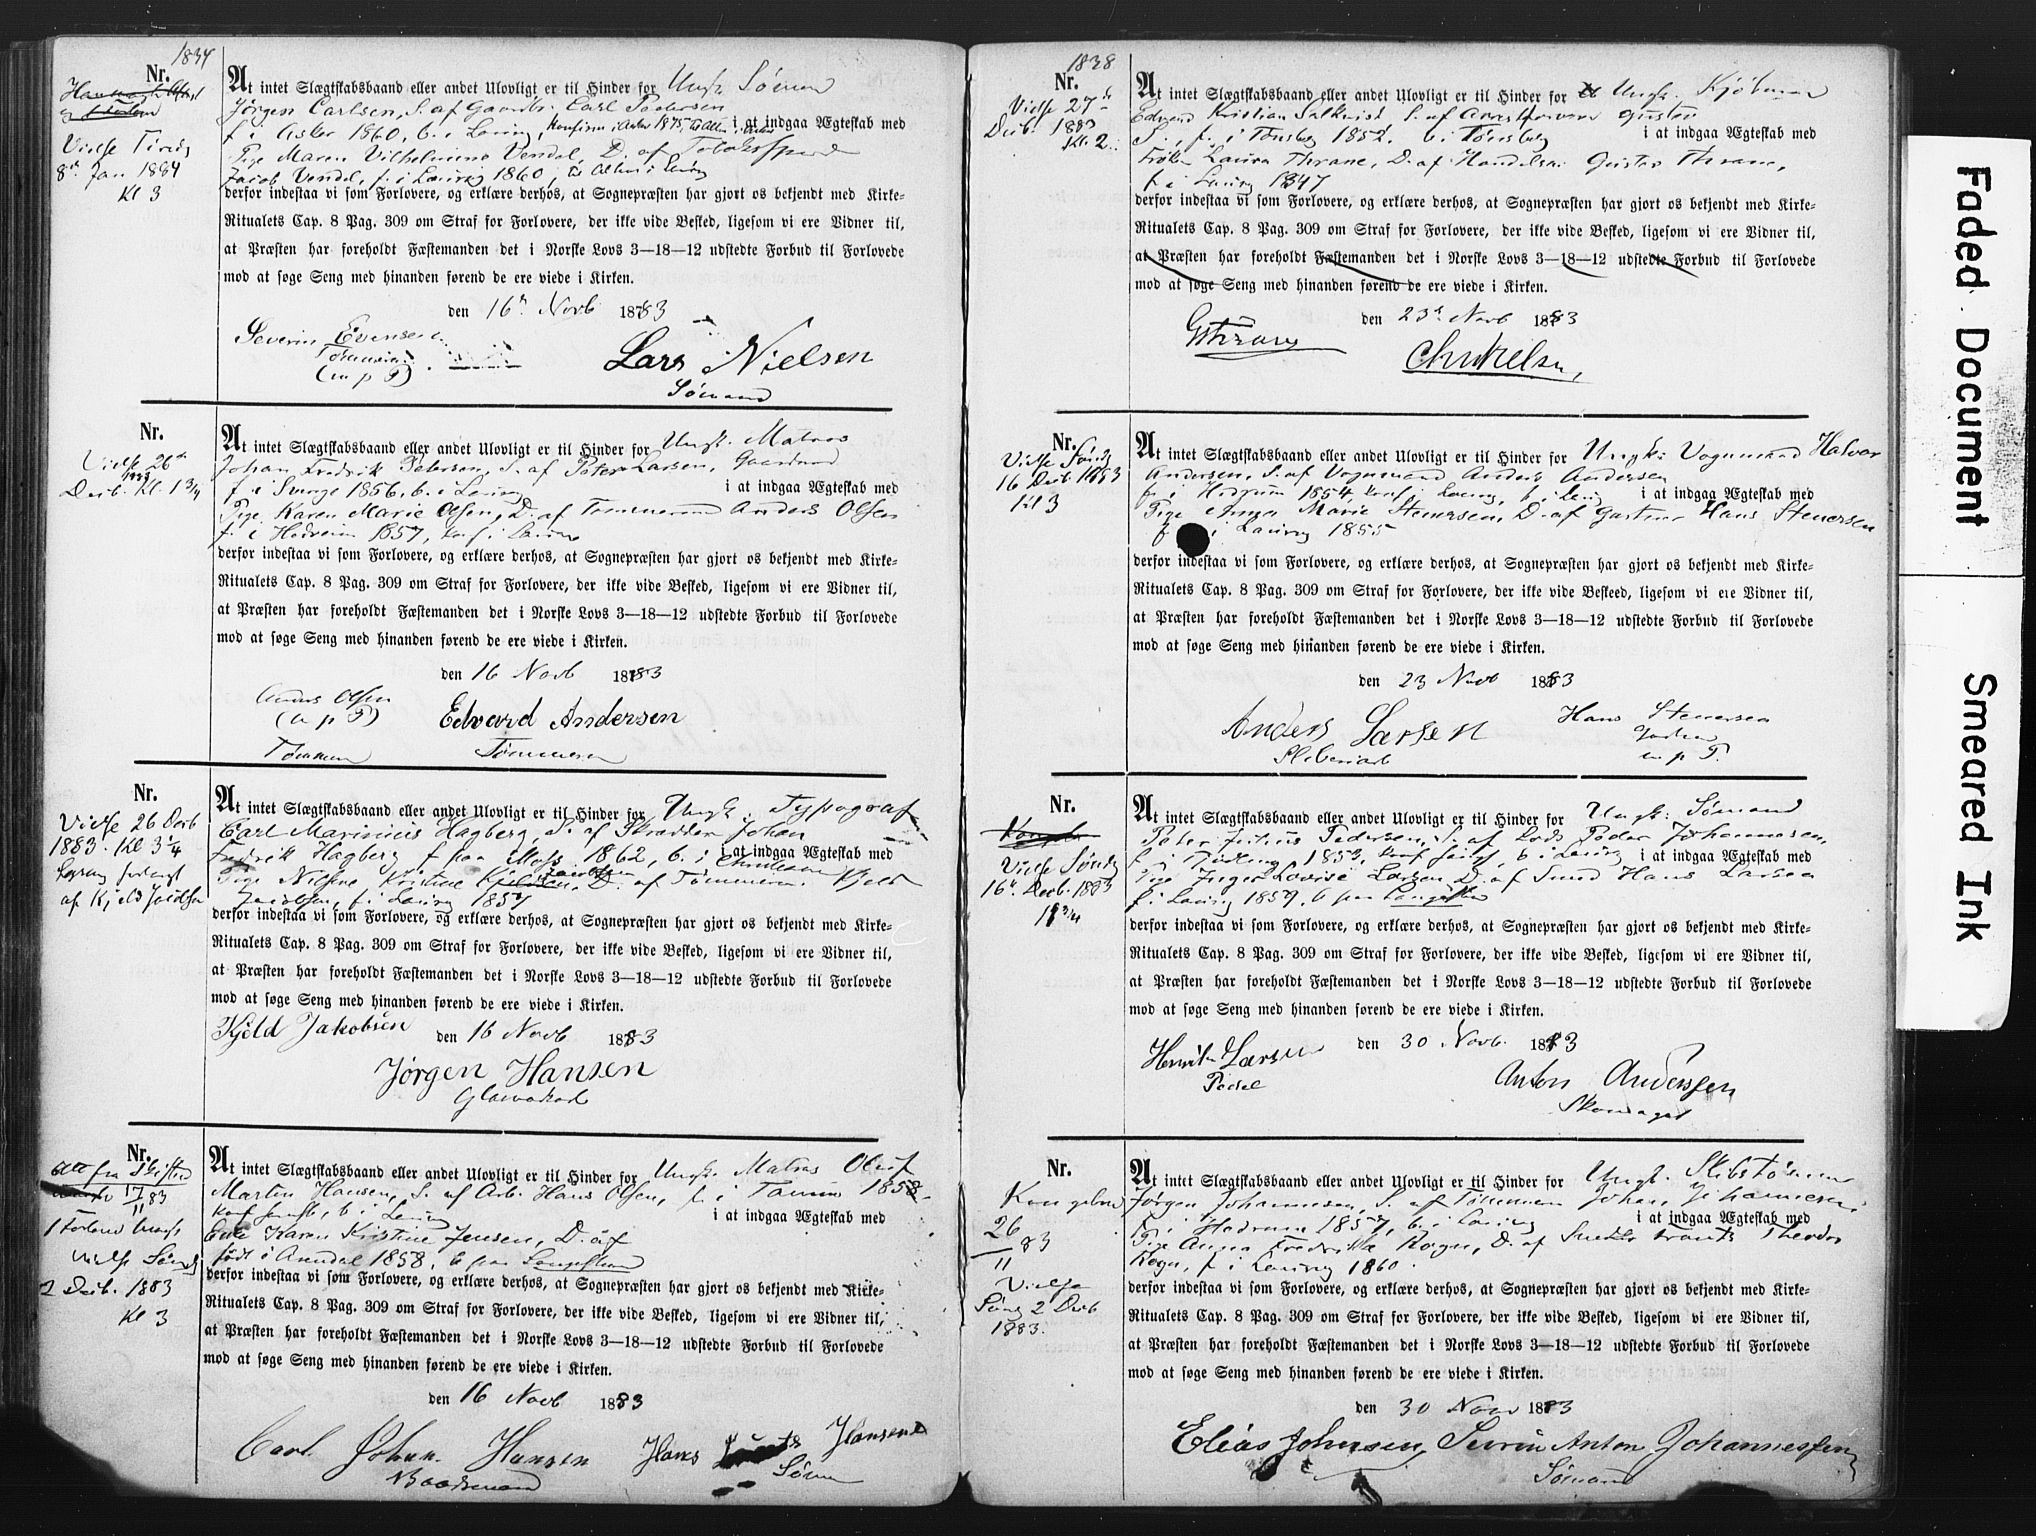 1834
Nr.
Vielse Tirsdg
8de Jan 1884
Kl 3
At intet Slægtskabsbaand eller andet Ulovligt er til Hinder for Ungk. Sømand
Jørgen Carlsen, S. af Gaardbr. Carl Pedersen
f. i Asker 1860, b. i Laurvig, i at indgaa Ægteskab med
Pige Maren Vilhelmine Vendel, D. af
Jacob Vendel, f. i Laurvig 1860
derfor indestaa vi som Forlovere, og erklære derhos, at Sognepræsten har gjort os bekjendt med Kirke-
Ritualets Cap. 8 Pag. 309 om Straf for Forlovere, der ikke vide Besked, ligesom vi ere Vidner til,
at Præsten har foreholdt Fæstemanden det i Norske Lovs 3—18—12 udstedte Forbud til Forlovede
mod at søge Seng med hinanden førend de ere viede i Kirken.
den 16de Novb 1883
Severin Evensen
(m p P)
Lars Nielsen
Sømand
Nr.
Vielse 26de
Decb. 1883 Kl. 1 3/4
At intet Slægtskabsbaand eller andet Ulovligt er til Hinder for Ungk. Matros
Johan Fredrik Petersen, S. af Peter Larsen, Gaardmd
f. i 1856, b. i Laurvig i at indgaa Ægteskab med
Pige Karen Marie Olsen, D. af Tømmermd Anders Olsen
f. i Hedrum 1857, konf. i Laurvig
derfor indestaa vi som Forlovere, og erklære derhos, at Sognepræsten har gjort os bekjendt med Kirke-
Ritualets Cap. 8 Pag. 309 om Straf for Forlovere, der ikke vide Besked, ligesom vi ere Vidner til,
at Præsten har foreholdt Fæstemanden det i Norske Lovs 3—18—12 udstedte Forbud til Forlovede
mod at søge Seng med hinanden førend de ere viede i Kirken.
den 16 Novb 1883
Anders Olsen
(m p P)
Edvard Andersen
Tømmerm
Nr.
Vielse 26 Decb
1883. Kl 3 1/4
At intet Slægtskabsbaand eller andet Ulovligt er til Hinder for Ungk. Typograf
Carl Marinius Hagberg, S. af Skrædder Johan
Fredrik Hagberg f. paa Moss 1862, b. i i at indgaa Ægteskab med
Pige Nilsine Kristine Jacobsen, D. af Tømmerm. Kjeld
Jacobsen, f. i Laurvig 1857
derfor indestaa vi som Forlovere, og erklære derhos, at Sognepræsten har gjort os bekjendt med Kirke-
Ritualets Cap. 8 Pag. 309 om Straf for Forlovere, der ikke vide Besked, ligesom vi ere Vidner til,
at Præsten har foreholdt Fæstemanden det i Norske Lovs 3—18—12 udstedte Forbud til Forlovede
mod at søge Seng med hinanden førend de ere viede i Kirken.
Kjeld Jakobsen den 16 Novb 1883
Jørgen Hansen
Nr.
Att fra
17/11 83
Vielse Søndg
2 Decb. 1883
Kl 3
At intet Slægtskabsbaand eller andet Ulovligt er til Hinder for Ungk. Matros Oluf
Martin Hansen, S. af Arb. Hans Olsen, f. i Tanum 1858
b. i Laurvig i at indgaa Ægteskab med
Enke Karen Kristine Jensen, D. af
født i Arendal 1858, b. paa Langestrand
derfor indestaa vi som Forlovere, og erklære derhos, at Sognepræsten har gjort os bekjendt med Kirke-
Ritualets Cap. 8 Pag. 309 om Straf for Forlovere, der ikke vide Besked, ligesom vi ere Vidner til,
at Præsten har foreholdt Fæstemanden det i Norske Lovs 3—18—12 udstedte Forbud til Forlovede
mod at søge Seng med hinanden førend de ere viede i Kirken.
den 16 Novb 1883
Carl Johan Hansen Hans Hansen
Sømd
1838
Nr.
Vielse 27de
Decb. 1883
Kl. 2
At intet Slægtskabsbaand eller andet Ulovligt er til Hinder for Ungk. Kjøbmand
Edvard Kristian S. af
S., f. i Tønsberg 1852. b. i Tønsberg i at indgaa Ægteskab med
Frøken Laura Thrane, D. af Handelsm. Gustav Thrane,
f. i Laurvig 1847
derfor indestaa vi som Forlovere, og erklære derhos, at Sognepræsten har gjort os bekjendt med Kirke-
Ritualets Cap. 8 Pag. 309 om Straf for Forlovere, der ikke vide Besked, ligesom vi ere Vidner til,
at Præsten har foreholdt Fæstemanden det i Norske Lovs 3—18—12 udstedte Forbud til Forlovede
mod at søge Seng med hinanden førend de ere viede i Kirken.
den 23de Novb 1883
GThrane
Nr.
Vielse Søndg
16 Decb 1883
Kl 3
At intet Slægtskabsbaand eller andet Ulovligt er til Hinder for Ungk. Vognmand Halvor
Andersen, S. af Vognmand Anders Andersen
f. i Hedrum 1854, konf. i Laurvig, b. i Laurvig i at indgaa Ægteskab med
Pige Anna Marie Stenersen, D. af Hans Stenersen
f. i Laurvig 1855
derfor indestaa vi som Forlovere, og erklære derhos, at Sognepræsten har gjort os bekjendt med Kirke-
Ritualets Cap. 8 Pag. 309 om Straf for Forlovere, der ikke vide Beskeed, ligesom vi ere Vidner til,
at Præsten har foreholdt Fæstemanden det i Norske Lovs 3—18—12 udstedte Forbud til Forlovede
mod at søge Seng med hinanden førend de ere viede i Kirken.
den 23 Novb 1883
Anders Larsen
Hans Stenersen
m. p P.
Nr.
Vielse Søndg
16de Decb. 1883
At intet Slægtskabsbaand eller andet Ulovligt er til Hinder for Ungk. Sømand
Peter Julius Pedersen, S. af Lods Peder Johannesen,
f. i Tjølling 1852, b. i Laurvig i at indgaa Ægteskab med
Pige Inger Lovise Larsen D. af Smed Hans Larsen
f. i Laurvig 1857, b paa Langestrand
derfor indestaa vi som Forlovere, og erklære derhos, at Sognepræsten har gjort os bekjendt med Kirke-
Ritualets Cap. 8 Pag. 309 om Straf for Forlovere, der ikke vide Besked, ligesom vi ere Vidner til,
at Præsten har foreholdt Fæstemanden det i Norske Lovs 3—18—12 udstedte Forbud til Forlovede
mod at søge Seng med hinanden førend de ere viede i Kirken.
Henrik Larsen den 30 Novb. 1883
Anton Anderssen
Skomager
Nr.
Kongebrev
26/11 83
Vielse
Søndg 2 Decb
1883.
At intet Slægtskabsbaand eller andet Ulovligt er til Hinder for Ungk. Skibstømmer
Jørgen Johannesen, S. af Tømmerm Johan Johannesen
f. i Hedrum 1857, b. i Laurvig i at indgaa Ægteskab med
Pige Anna Fredrikke Rogn, D. af Theodor
Rogn, f. i Laurvig 1860.
derfor indestaa vi som Forlovere, og erklære derhos, at Sognepræsten har gjort os bekjendt med Kirke-
Ritualets Cap. 8 Pag. 309 om Straf for Forlovere, der ikke vide Besked, ligesom vi ere Vidner til,
at Præsten har foreholdt Fæstemanden det i Norske Lovs 3—18—12 udstedte Forbud til Forlovede
mod at søge Seng med hinanden førend de ere viede i Kirken.
den 30 Nov 1883
Elias Johnsen, Sevrin Anton Johannessen
Sømand
Faded Document
Smeared Ink